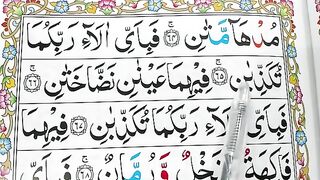 مُدْهَآ مَّتٰنِ ۚ ﴿٦٤﴾ فَبِاَىِّ اٰلَآءِ رَبِّكُمَا
تُكَذِّبٰنِ ۚ ﴿٦٥﴾ فِيْهِمَا عَيْنٰنِ نَضَّاخَتٰنِ ۚ ﴿٦٦﴾
فَبِاَىِّ اٰلَآءِ رَبِّكُمَا تُكَذِّبٰنِ ﴿٦٧﴾ فِيْهِمَا
فَاكِهَةٌ وَّنَخْلٌ وَّرُمَّانٌ ۚ ﴿٦٨﴾ فَبِاَىِّ